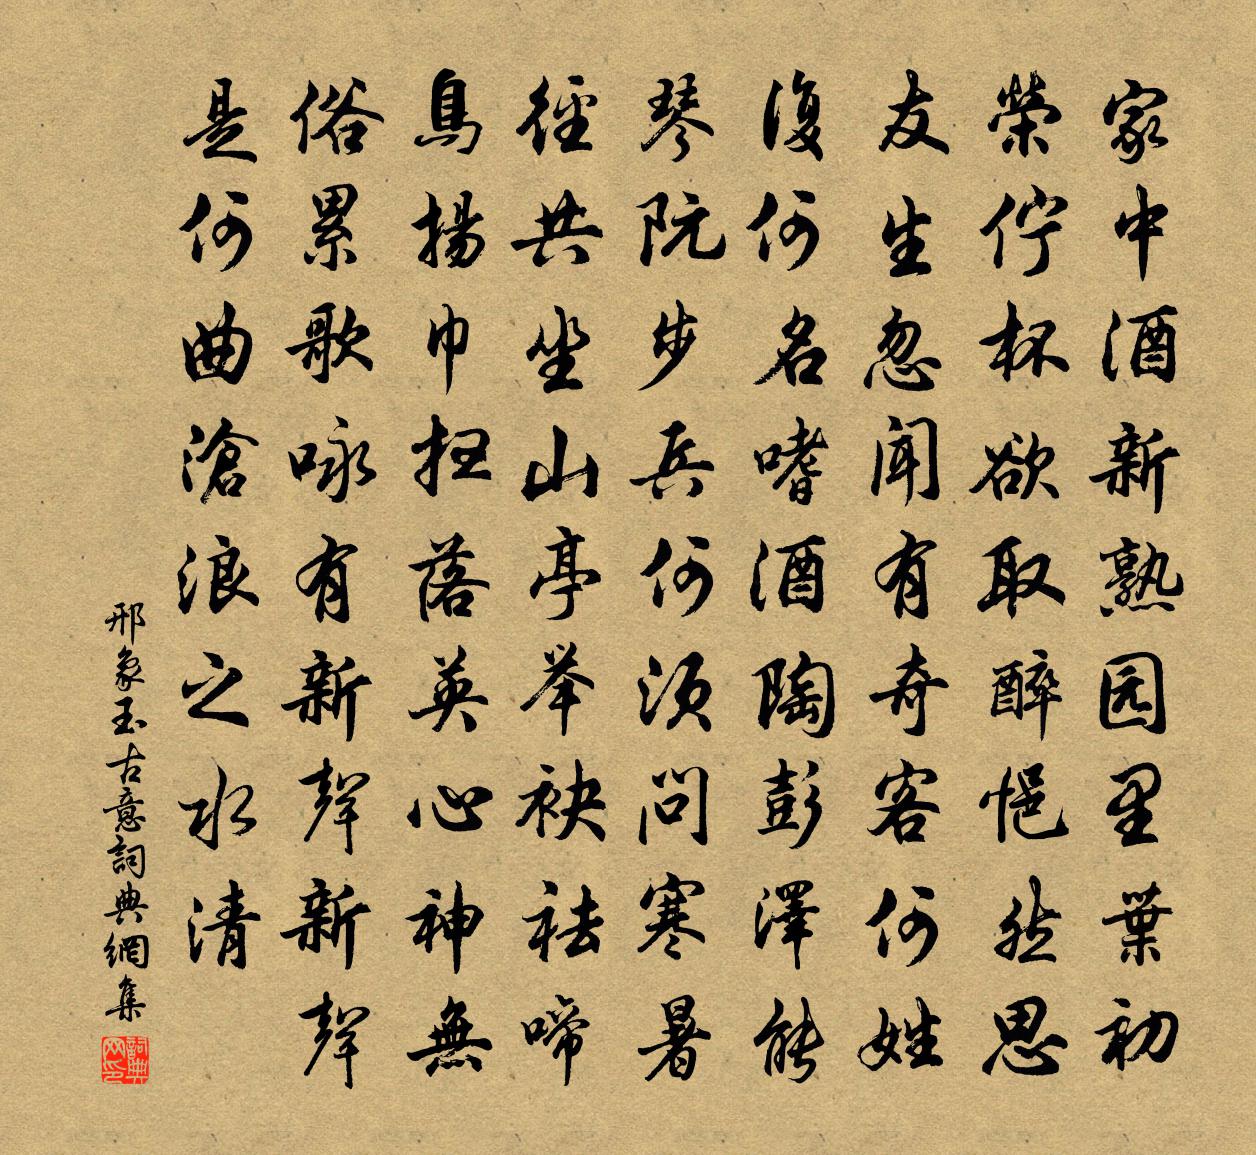 家中酒新熟园里葉初
榮佇杯欲取醉悒然思
友生忽闻有奇客何姓
復何名嗜酒陶彭澤能
琴阮步兵何須问寒暑
徑共坐山亭举袂祛啼
鳥揚巾扫落英心神無
俗累歌咏有新聲新聲
是何曲滄浪之水清
邢象玉古意詞典網集
詞典网印